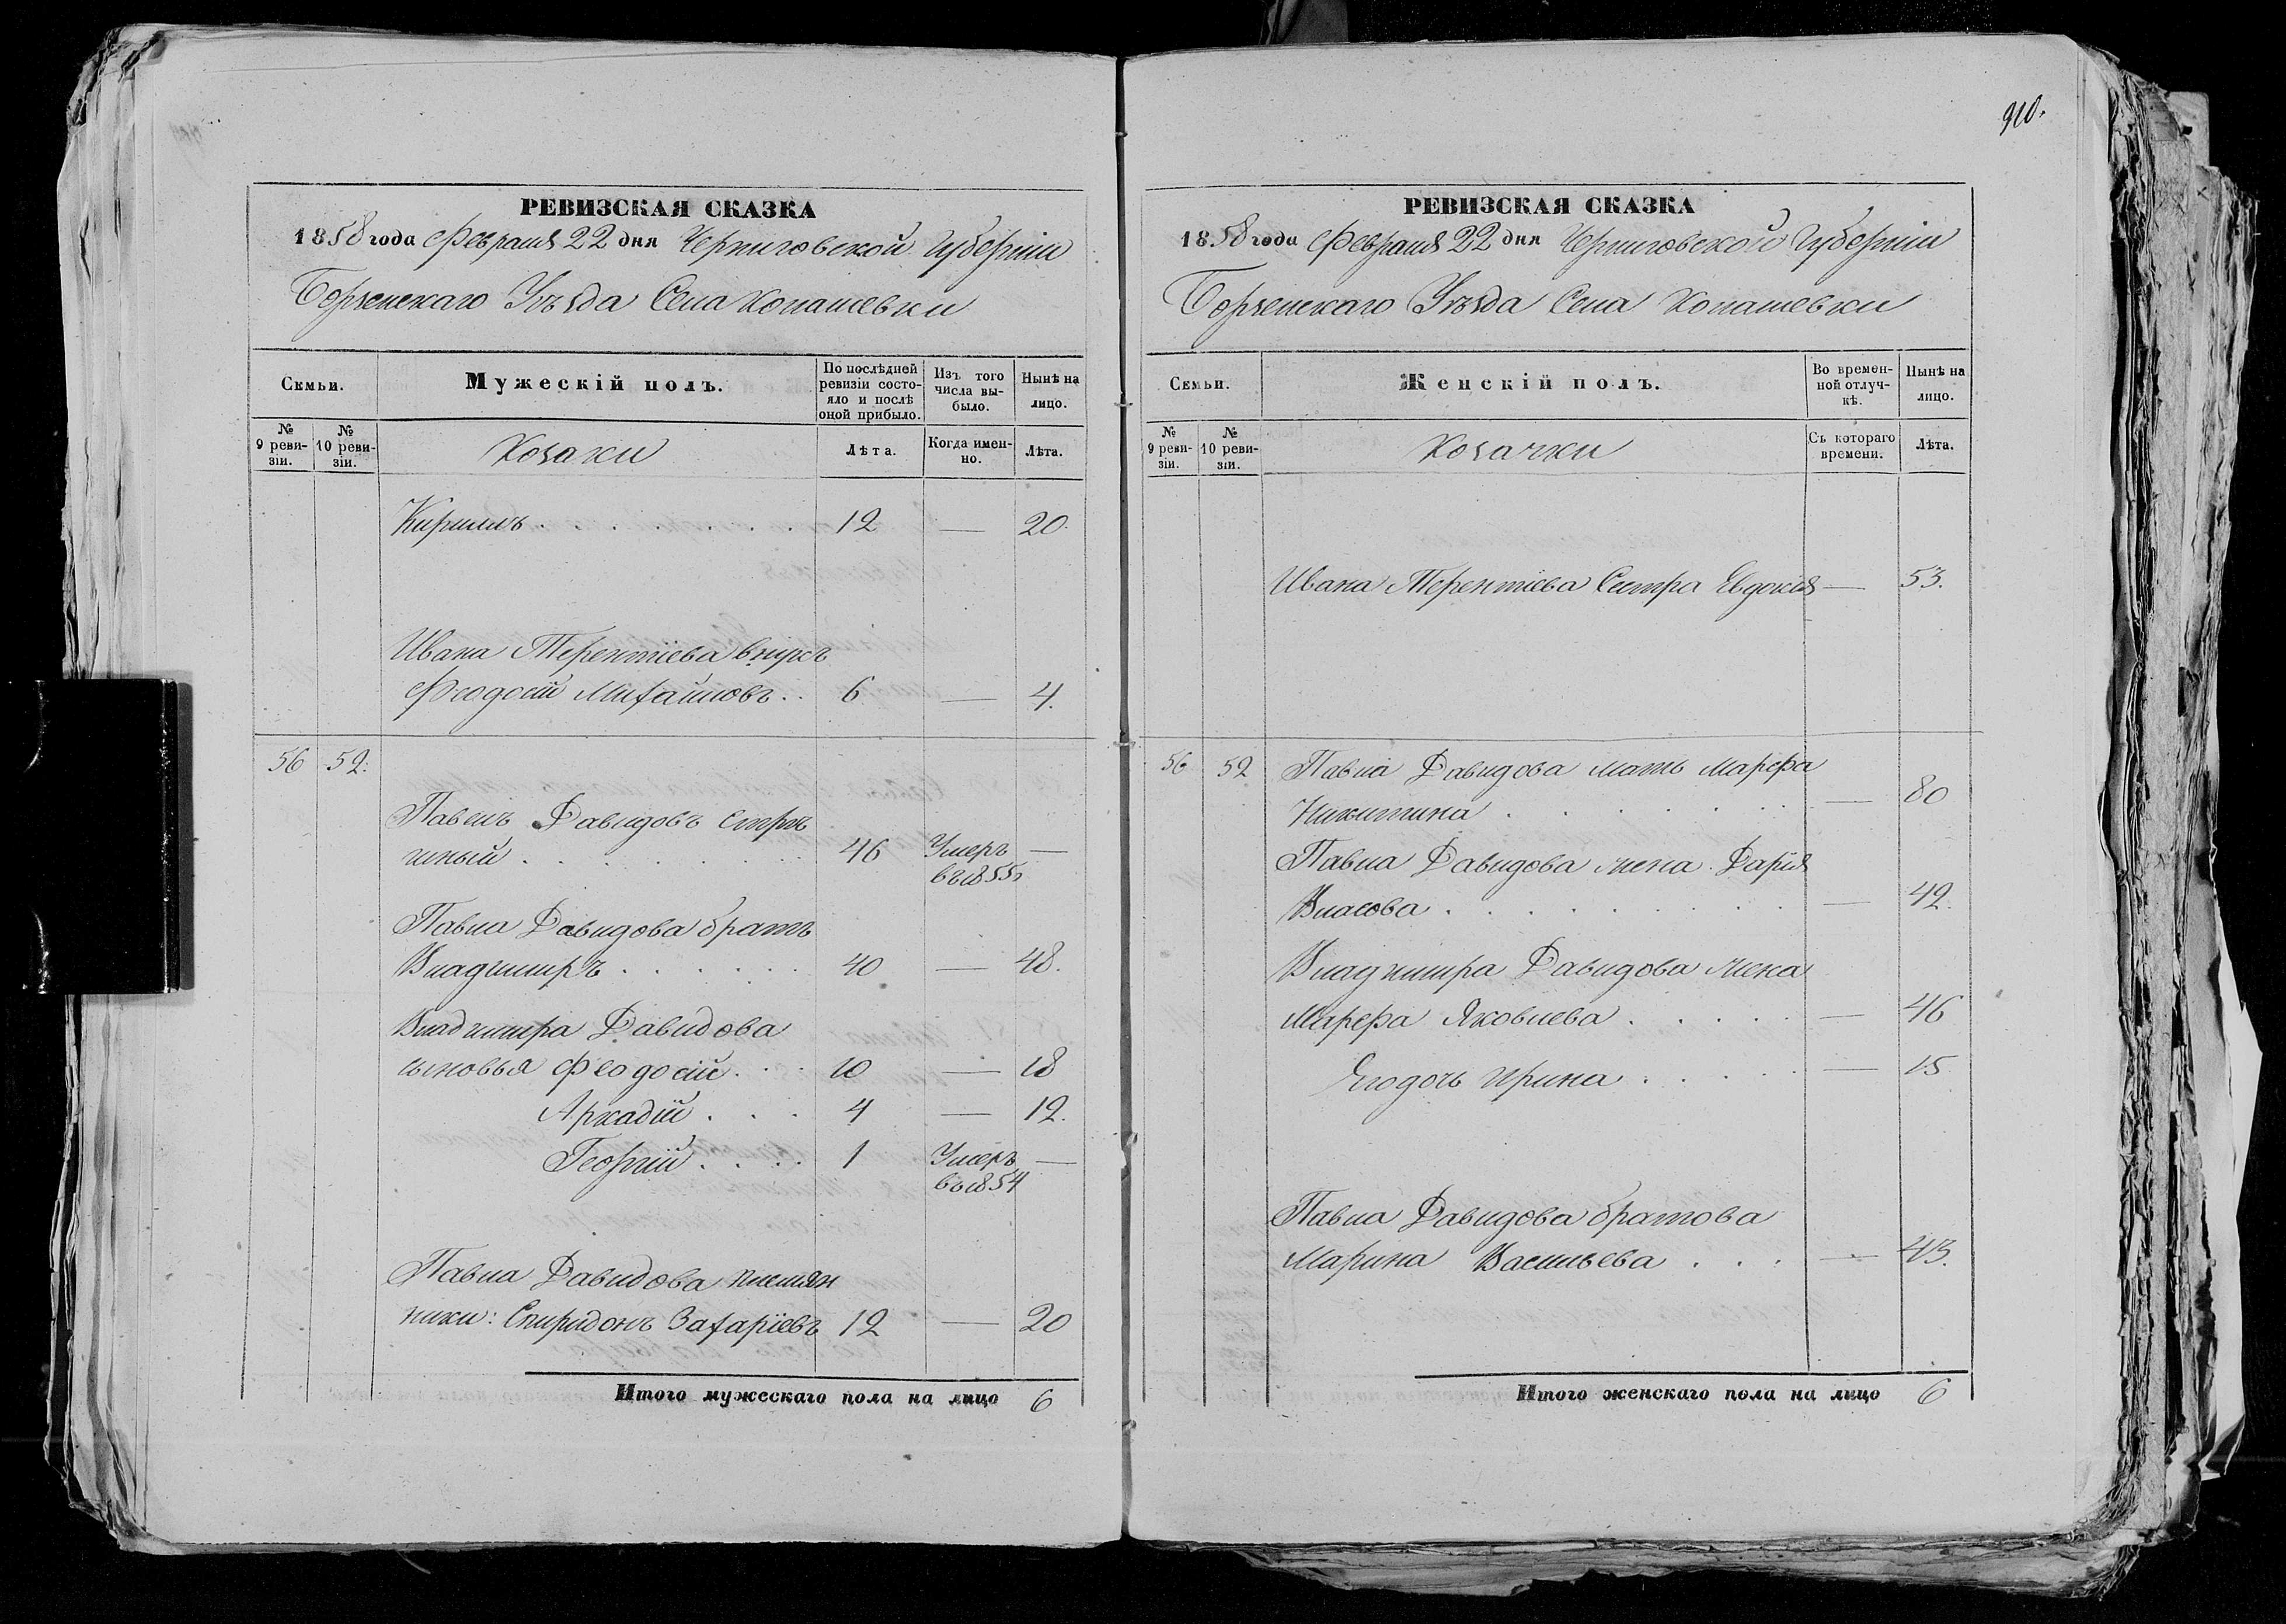 910.
РЕВИЗСКАЯ СКАЗКА
1858 года Февраля 22 дня Черниговской Губерніи
Борзенскаго Уѣзда Села Хопашевки
Семьи.
Мужескій полъ.
По послѣдней ревизіи состояло и послѣ оной прибыло.
Изъ того числа выбыло.
Нынѣ на лицо.
№ 9 ревизіи.
№ 10 ревизіи.
Козаки
Лѣта.
Когда именно.
Лѣта.
Кирилъ . . . . . . . 12 — 20.
Ивана Терентіева внукъ
Феодосій Михайловъ . . 6 — 4.
56 52.
Павелъ Давидовъ
шный . . . . . . . 46 Умеръ —
въ 1855
Павла Давидова братъ
Владимиръ . . . . . 40 — 48.
Владимира Давидова
сыновья Феодосій . . . 10 — 18
Аркадій . . . 4 — 12.
Георгій . . . . 1 Умеръ —
въ 1854
Павла Давидова племян
ники: Спиридонъ Захаріевъ 12 — 20
Итого мужескаго пола на лицо 6
РЕВИЗСКАЯ СКАЗКА
1858 года Февраля 22 дня Черниговской Губерніи
Борзенскаго Уѣзда Села Хопашевки
Семьи.
Женскій полъ.
Во временной отлучкѣ.
Нынѣ на лицо.
№ 9 ревизіи.
№ 10 ревизіи.
Козачки
Съ котораго времени.
Лѣта.
Ивана Терентіева Сестра Евдокія — 53.
56 52 Павла Давидова мать Марфа
Никитина . . . . . . . — 80
Павла Давидова жена Дарія
Власова . . . . . . . . . — 42.
Владимира Давидова жена
Марфа Яковлева . . . . . — 46
Егодочь Ирина . . . . . — 15
Павла Давидова братова
Марина Васильева . . . — 43.
Итого женскаго пола на лицо 6